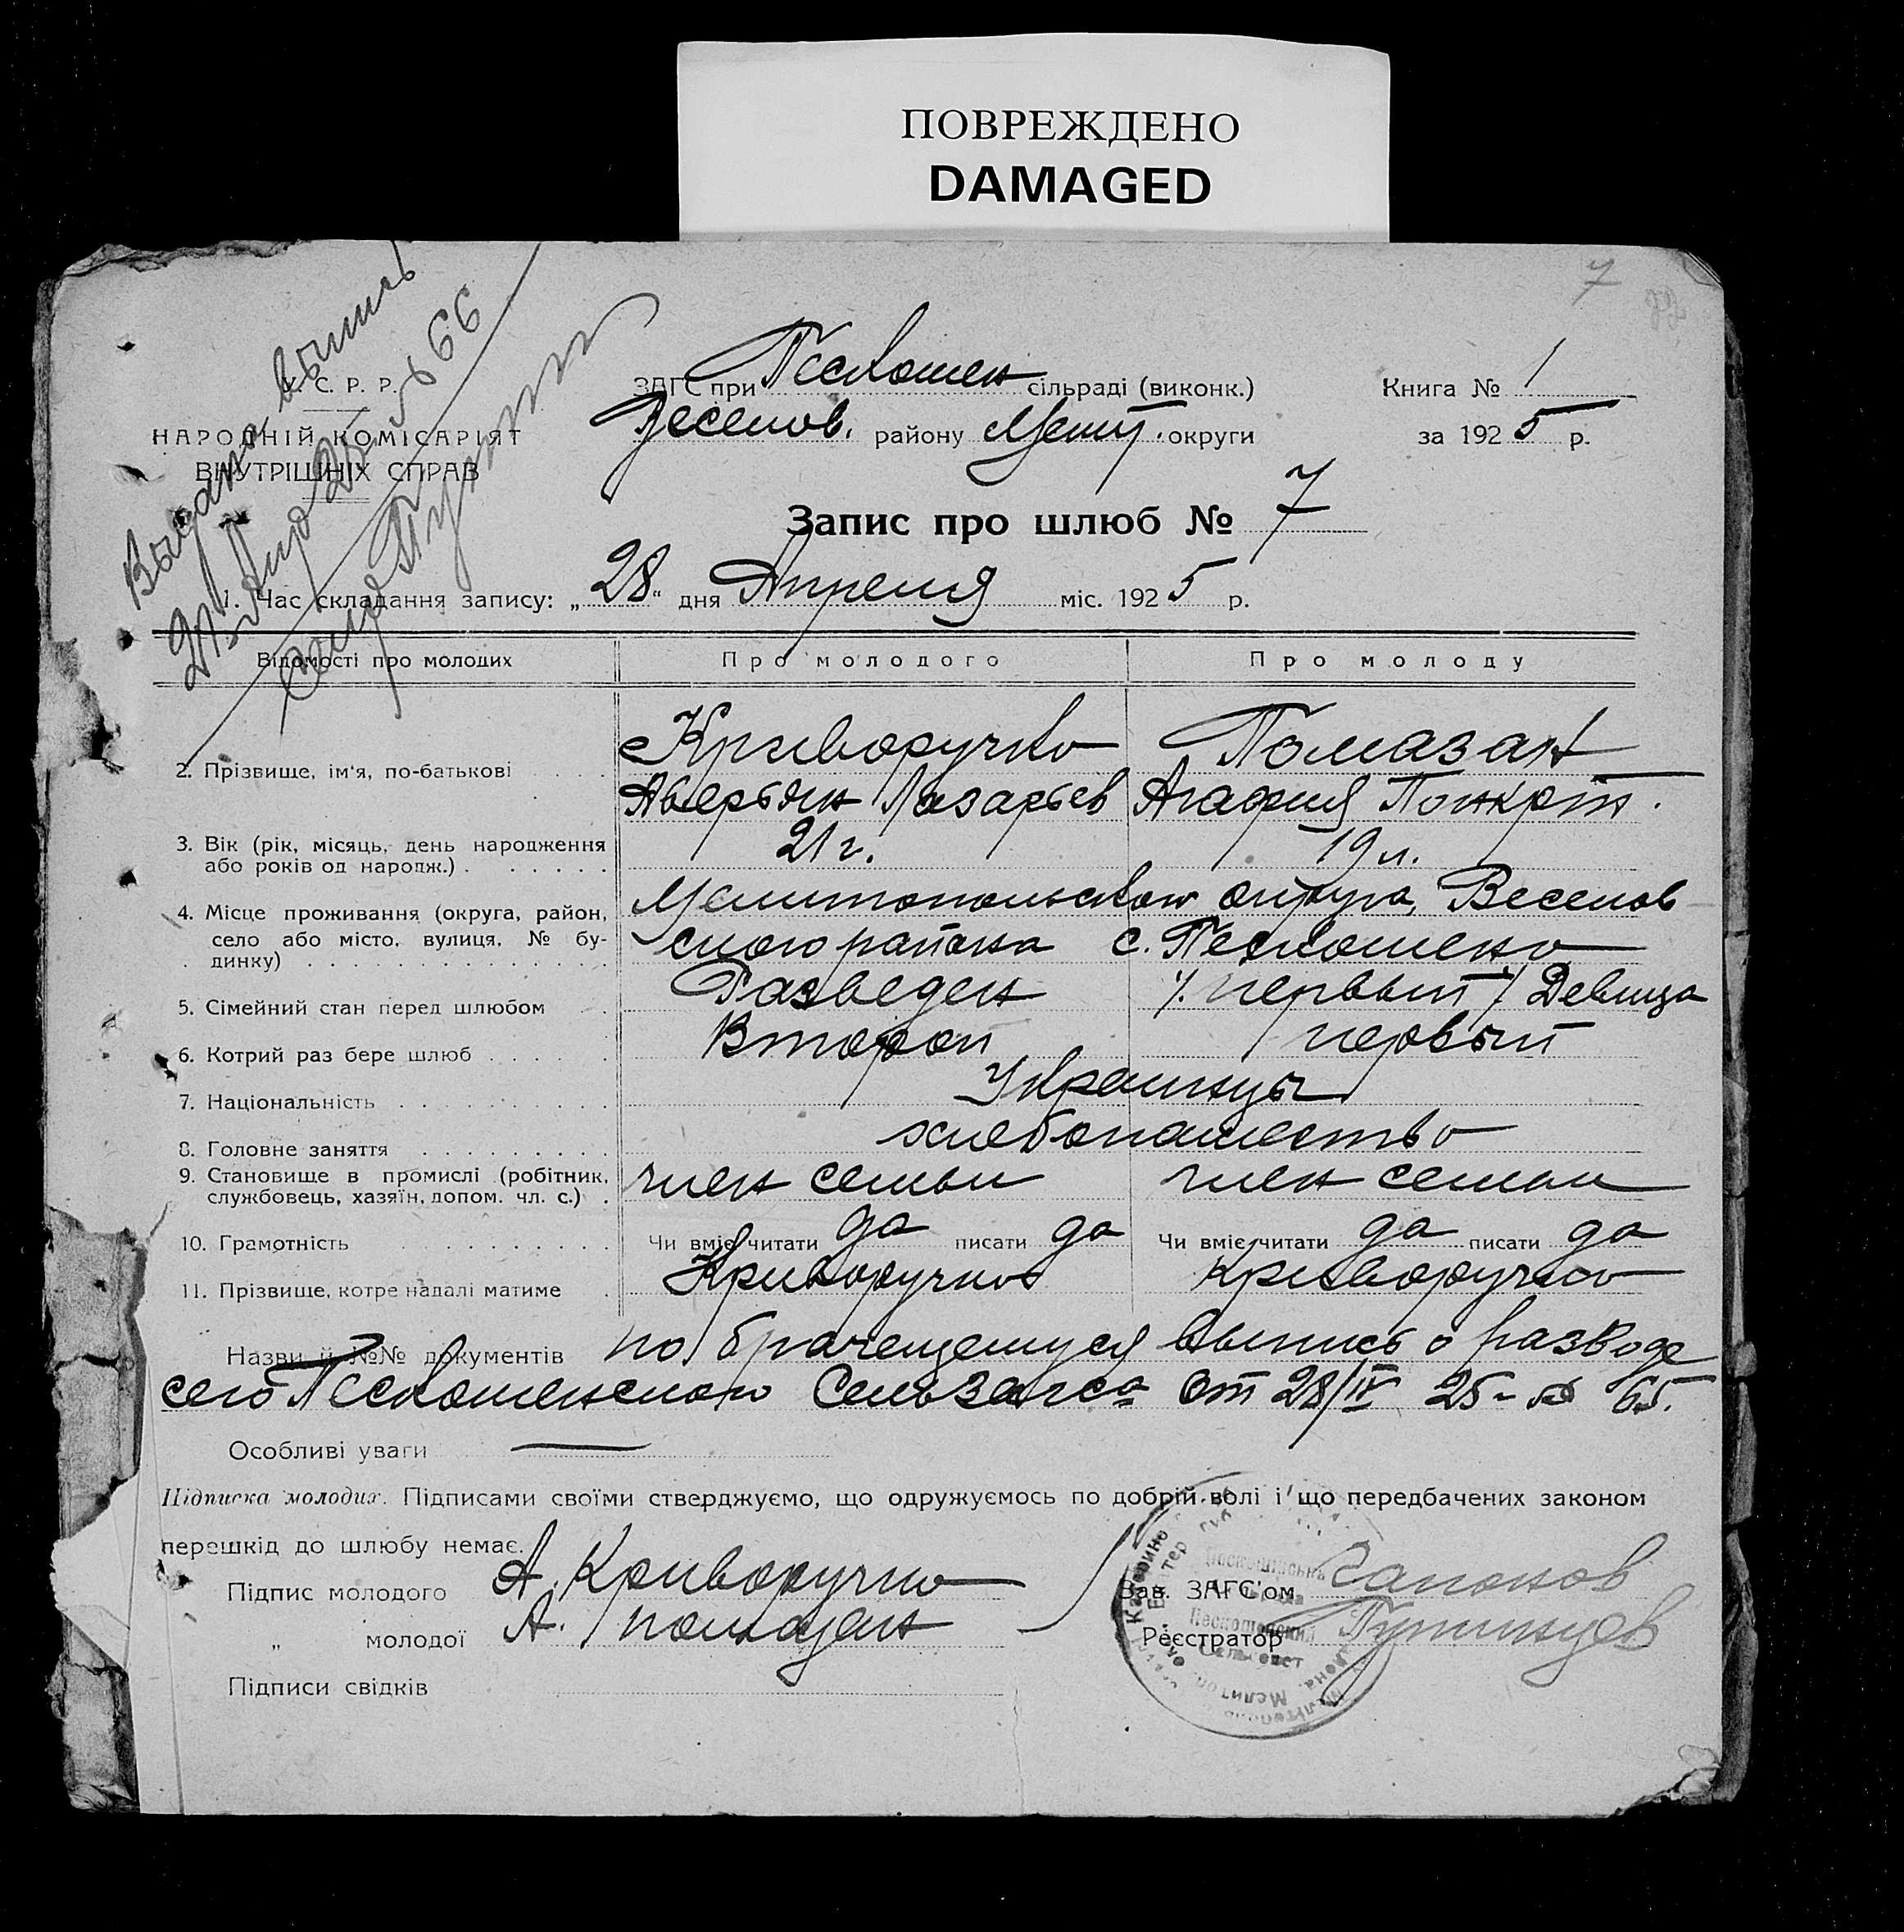 ПОВРЕЖДЕНО
DAMAGED
7
Выдана выпись
28 Апр 25 № 66
У. С. Р. Р.
НАРОДНІЙ КОМІСАРІЯТ
ВНУТРІШНІХ СПРАВ
ЗАГС при Пескошен сільраді (виконк.)
Веселов. району Мелит. округи
Книга № 1
за 1925 р.
Запис про шлюб № 7
1. Час складання запису: „28" дня Апреля міс. 1925 р.
Відомості про молодих Про молодого Про молоду
2. Прізвище, ім'я, по-батькові Криворучко Помазан
Аверьян Лазарьев Агафия Понкрат.
3. Вік (рік, місяць, день народження або років од народж.) 21 г. 19 л.
4. Місце проживання (округа, район, Мелитопольского округа, Веселов
село або місто, вулиця, № бу- ского района с. Пескошено
динку)
5. Сімейний стан перед шлюбом Разведен /. первый / Девица
6. Котрий раз бере шлюб Второй первый
7. Національність Украинцы
8. Головне заняття хлебопашество
9. Становище в промислі (робітник, член семьи член семьи
службовець, хазяїн, допом. чл. с.)
10. Грамотність Чи вміє читати да писати да Чи вміє читати да писати да
11. Прізвище, котре надалі матиме Криворучко Криворучко
Назви й №№ документів по брачещемуся выпись о разводе
сего Пескошенского Сельзагса от 28/IV 25 № 65.
Особливі уваги —
Підписка молодих. Підписами своїми стверджуємо, що одружуємось по добрій волі і що передбачених законом
перешкід до шлюбу немає.
Підпис молодого А. Криворучко
„ молодої А. помазан
Підписи свідків
Зав. ЗАГС'ом Гапонов
Реєстратор
Пескошенский
Сельсовет